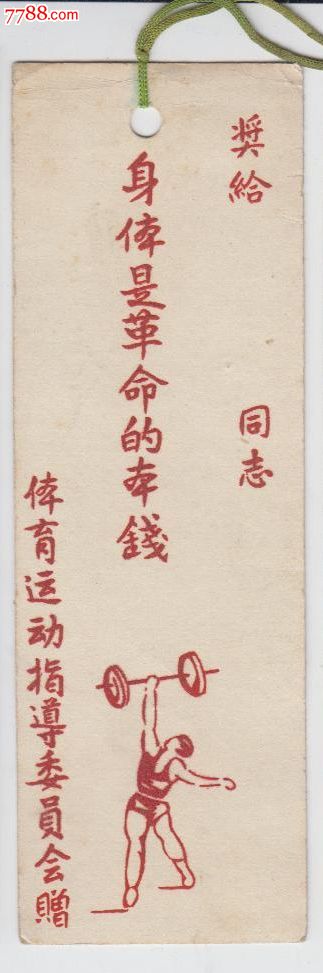 7788.com
奖給
同志
身体是革命的本錢
体育运动指導委員会贈